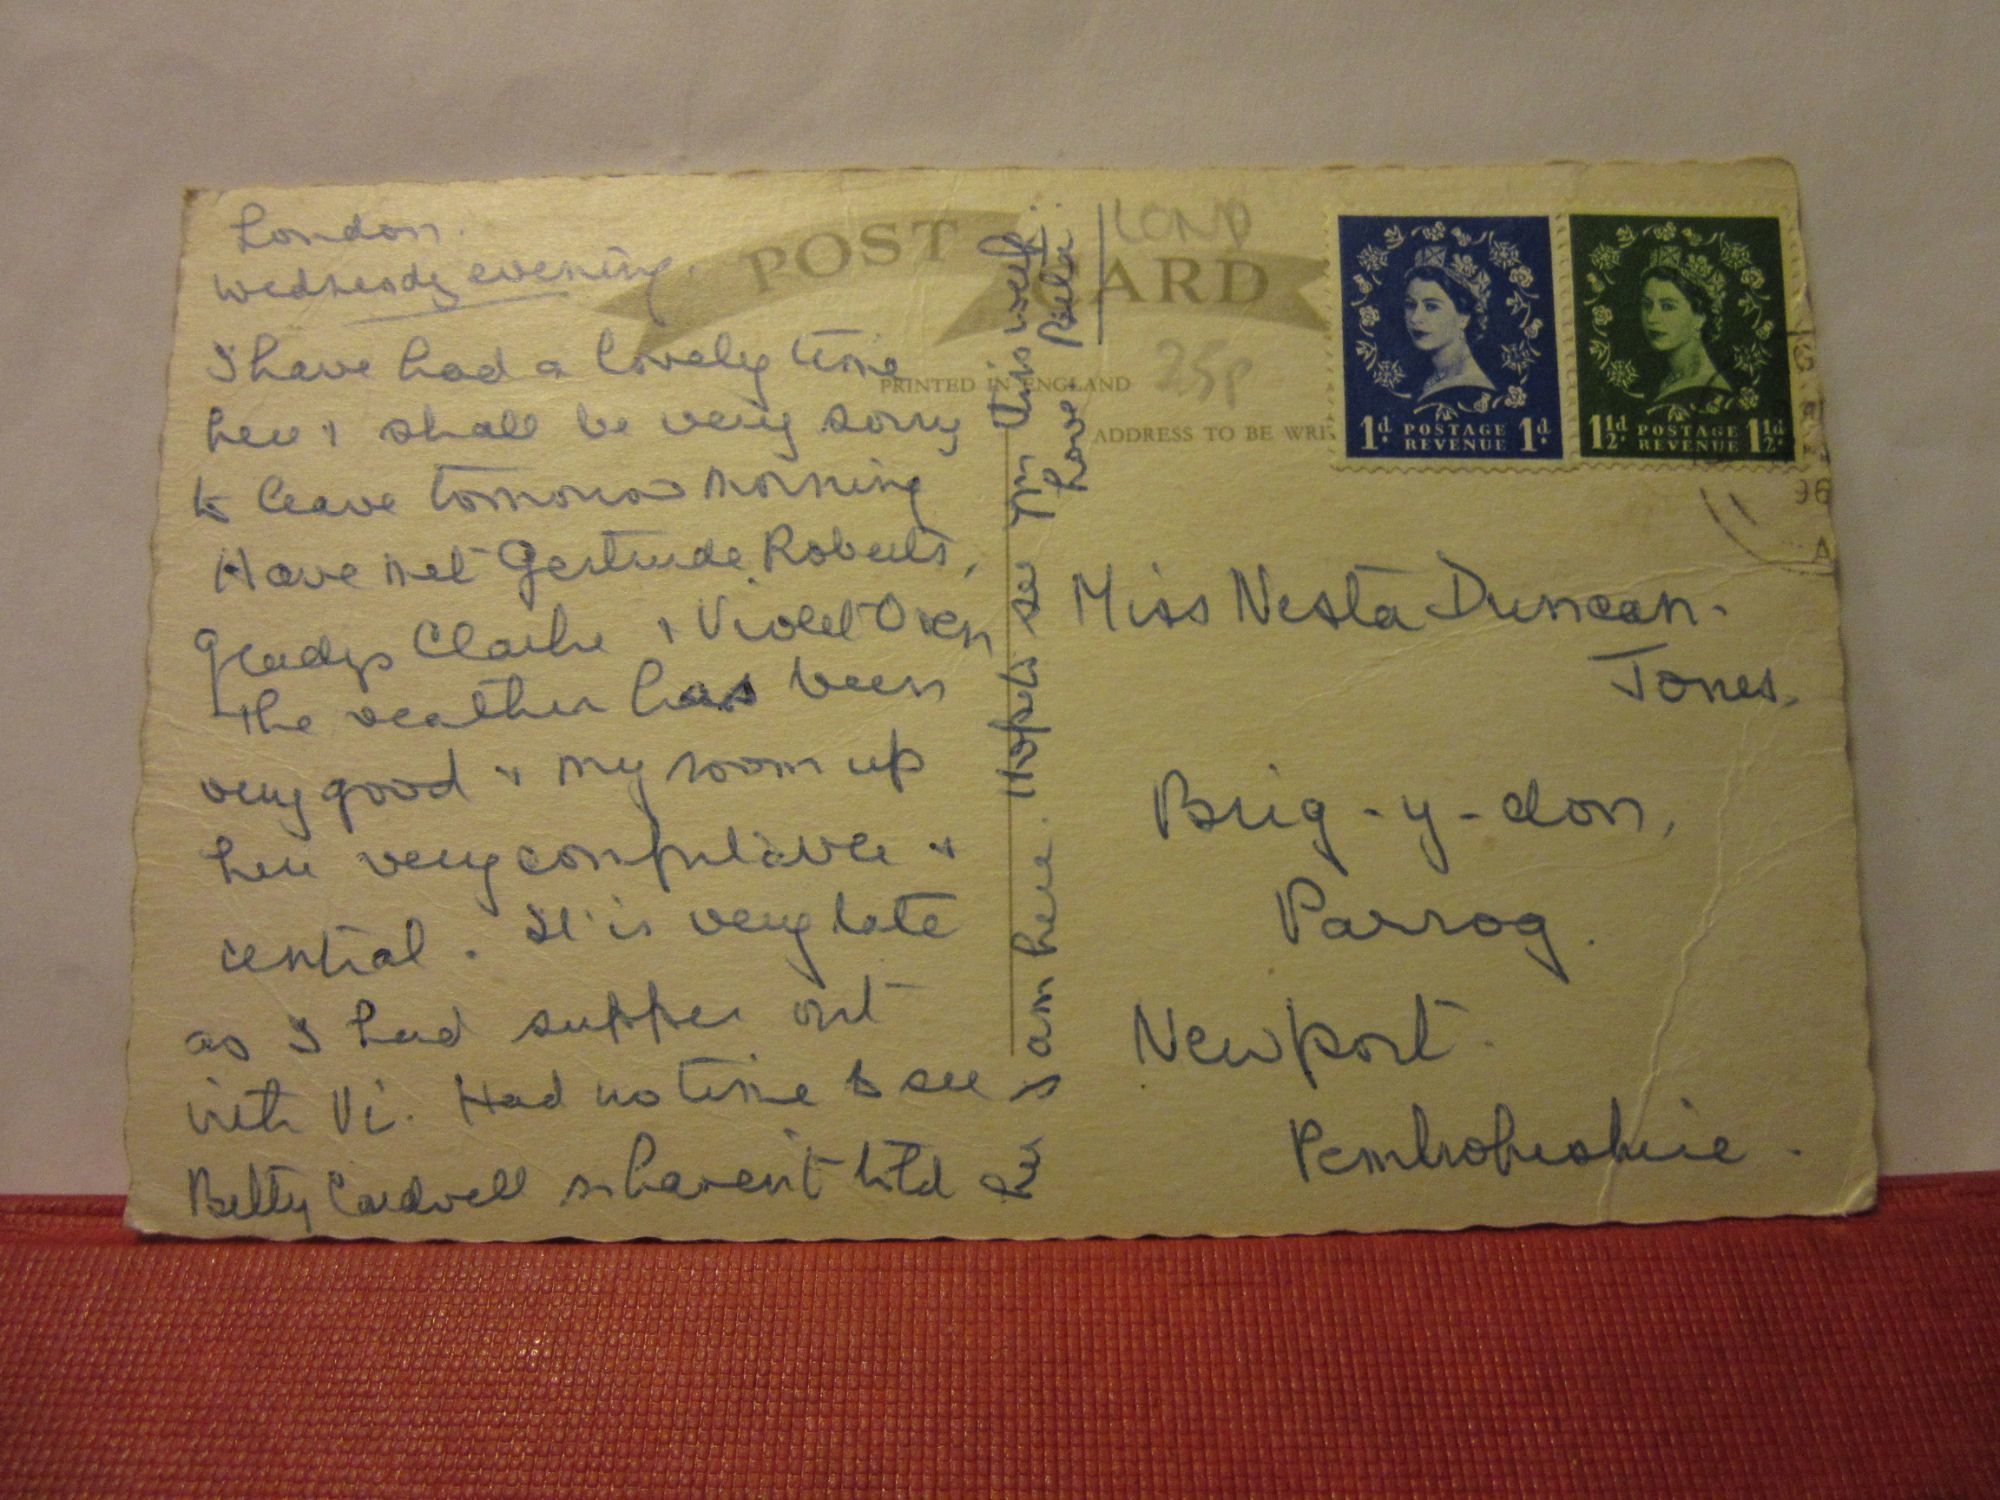 London.
Wednesday evening.
I have had a lovely time
here & shall be very sorry
to leave tomorrow morning
Have met Gertrude Roberts,
Gladys Clarke & Violet Oxen
The weather has been
very good & my room up
here very comfortable &
central. It is very late
as I had supper out
with Vi. Had no time to see
Betty Cardwell so haven't told
her I am here. Hope to see you this week.
Love
POST CARD
LOND
PRINTED IN ENGLAND
25p
ADDRESS TO BE WRI
1d. POSTAGE REVENUE 1d.
1½d. POSTAGE REVENUE 1½d.
96
A
Miss Nesta Duncan-
Jones,
Brig-y-don,
Parrog.
Newport.
Pembrokeshire.